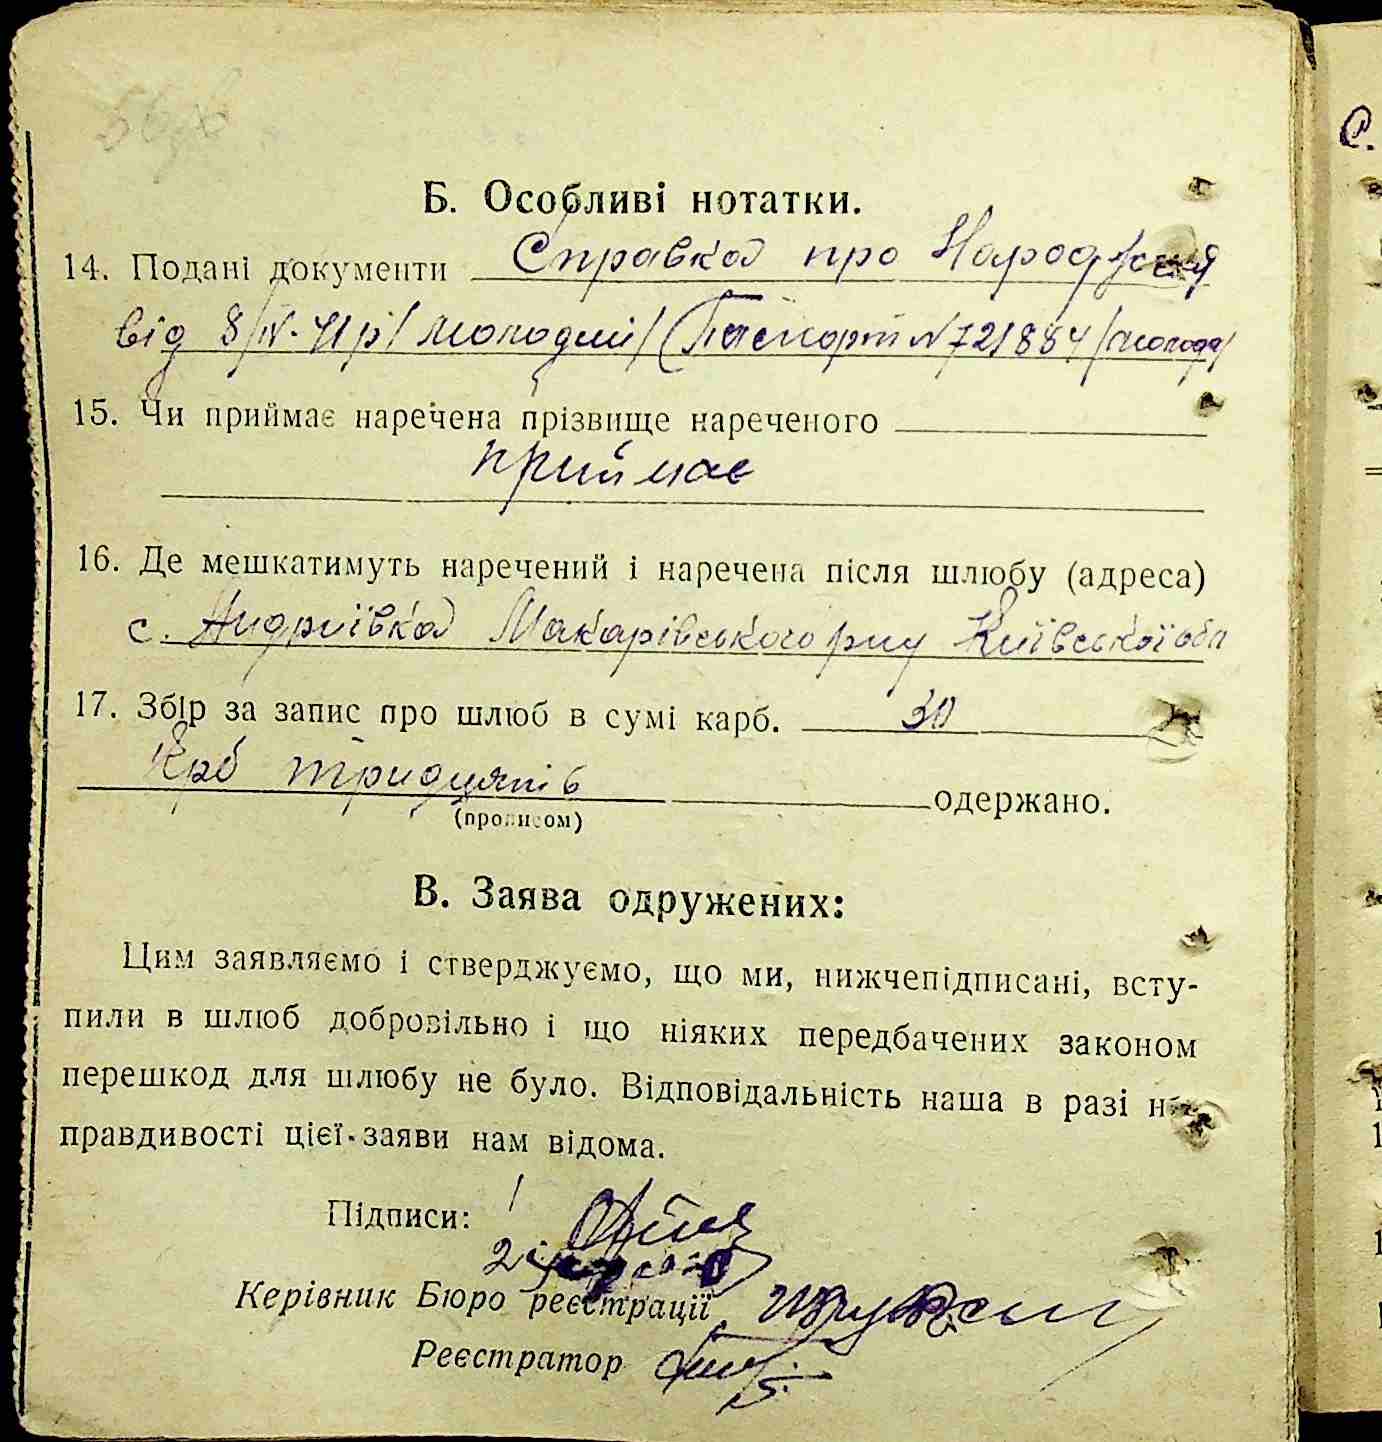 Б. Особливі нотатки.
14. Подані документи Справка про Народження
від 8/IV-41р/молодий/ Паспорт №721884/молода/
15. Чи приймає наречена прізвище нареченого
приймає
16. Де мешкатимуть наречений і наречена після шлюбу (адреса)
с. Андріївка Макарівського р-ну Київської обл
17. Збір за запис про шлюб в сумі карб. 30
Крб тридцять одержано.
(прописом)
В. Заява одружених:
Цим заявляємо і стверджуємо, що ми, нижчепідписані, всту-
пили в шлюб добровільно і що ніяких передбачених законом
перешкод для шлюбу не було. Відповідальність наша в разі не-
правдивості цієї заяви нам відома.
Підписи: 1
2
Керівник Бюро реєстрації
Реєстратор
С.